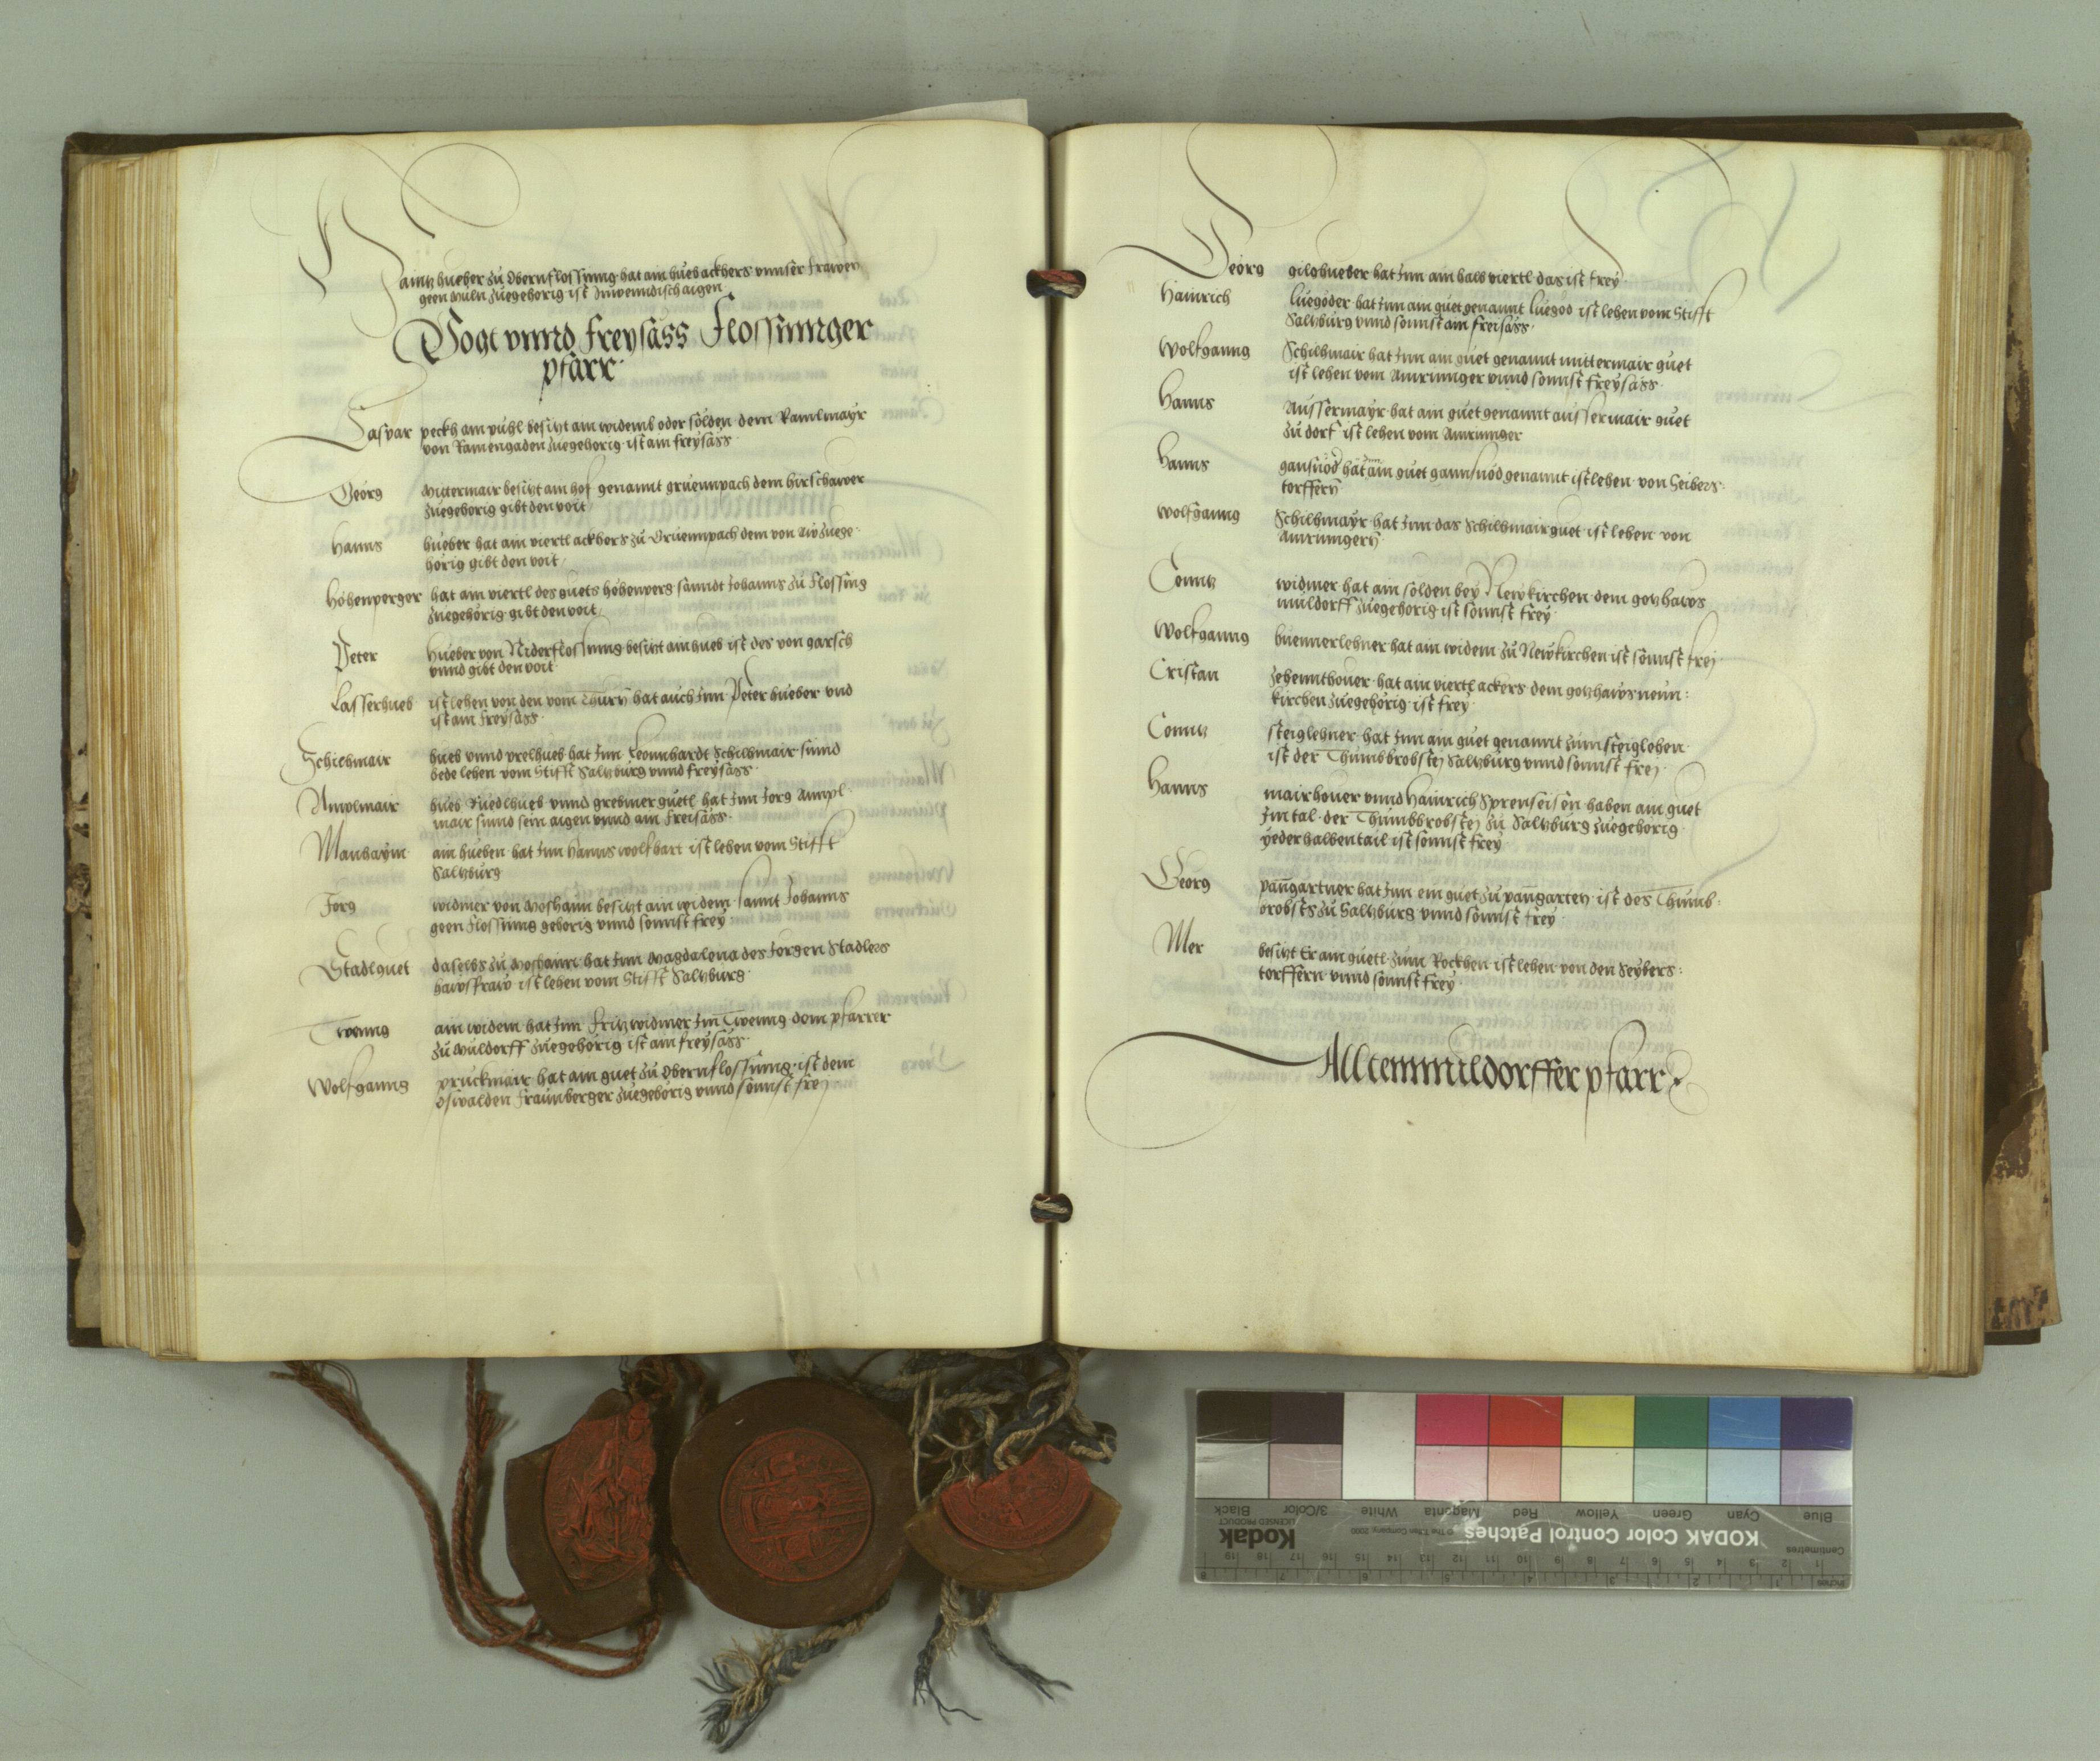 Haintz hueber zu Obernflossinng hat ain hueb ackhers unnser frawen
geen Muln zuegehorig ist Inwenndisch aigen
Vogt unnd freysäss Flossinnger
pfarr
Caspar peckh am puhl besitzt ain widemb oder sölden dem Ramlmayr
von Ramengaden zuegehorig ist ain freysäss
Georg Mittermair besitzt ain hof genannt gruennpach dem hirschawer
zuegehorig gibt den voit
Hanns hueber hat ain viertl ackhers zu Gruennpach dem von Au zuege
horig gibt den voit
Hohenperger hat ain viertl des guets hohenperg sanndt Johanns zu flossing
zuegehorig gibt den voit
Peter Hueber von Niderflossinng besitzt ain hueb ist des von garsch
unnd gibt den voit
Lasserhueb ist lehen von den vom Thurn hat auch Inn Peter hueber und
ist ain freysäss
Schichmair hueb unnd hat Inn Leonnhardt Schilhmair sinnd
bede lehen vom Stifft Saltzburg unnd freysäss
Amplmair hueb unnd grebmer guetl hat Inn Jorg Ampl
mair sinnd sein aigen unnd ain freisäss
Manhaym ain hueben hat Inn Hanns wolfhart ist lehen vom Stifft
Saltzburg
Jorg widmer von Moshaim besitzt ain widem sannt Johanns
geen flossinng gehorig unnd sonnst frey
Stadlguet daselbs zu Moshaim hat Inn Magdalena des Jorgen Stadlers
hawsfraw ist lehen vom Stifft Saltzburg
Twenng ain widem hat Inn Fritz widmer Im Twenng dem pfarrer
zu Muldorff zuegehorig ist ain freysäss
Wolfganng pruckmair hat ain guet zu Obernflossinng ist dem
Oswalden fraunberger zuegehorig unnd sonnst frey
Georg gilghueber hat Inn ain halb viertl das ist frey
Hainrich Luegöder hat Inn ain guet genannt Luegöd ist lehen vom Stifft
Saltzburg unnd sonnst ain freisäss
Wolfganng Schilhmair hat Inn ain guet genannt mittermair guet
ist lehen vom Amrannger unnd sonnst freysäss
Hanns Aussermayr hat ain guet genannt aussermair guet
zu dorf ist lehen vom Amrannger
Hanns gansnöd hat Inn ain guet gannsnöd genannt ist lehen von Seibers
torffern
Wolfganng Schilhmayr hat Inn das Schilhmairguet ist lehen von
Amranngern
Conntz widmer hat ain sölden bey Newkirchen dem gotzhaws
muldorff zuegehorig ist sonnst frey
Wolfganng huennerlehner hat ain widem zu Newkirchen ist sonnst frej
Cristan Zehenntbouer hat ain viertl ackers dem gotzhaws neun
kirchen zuegehorig ist frey
Conntz steiglehner hat Inn ain guet genannt zum steiglehen
ist der Thumbbrobstej Saltzburg unnd sonnst frej
Hanns mairhouer unnd Hainrich Sprenseisen haben ain guet
Im tal der Thumbbrobstej zu Saltzburg zuegehorig
yeder halben tail ist sonnst frey
Georg pangartner hat Inn ein guet zu pangarten ist des Thumb
brobsts zu Saltzburg unnd sonnst frey
Mer besitzt Er ain guetl zum Rockhen ist lehen von den Seybers
torffern unnd sonnst frey
Alltenmuldorffer pfarr
Kodak
LICENSED PRODUCT
KODAK Color Control Patches
© The Tiffen Company, 2000
Blue Cyan Green Yellow Red Magenta White 3/Color Black
Centimetres
Inches